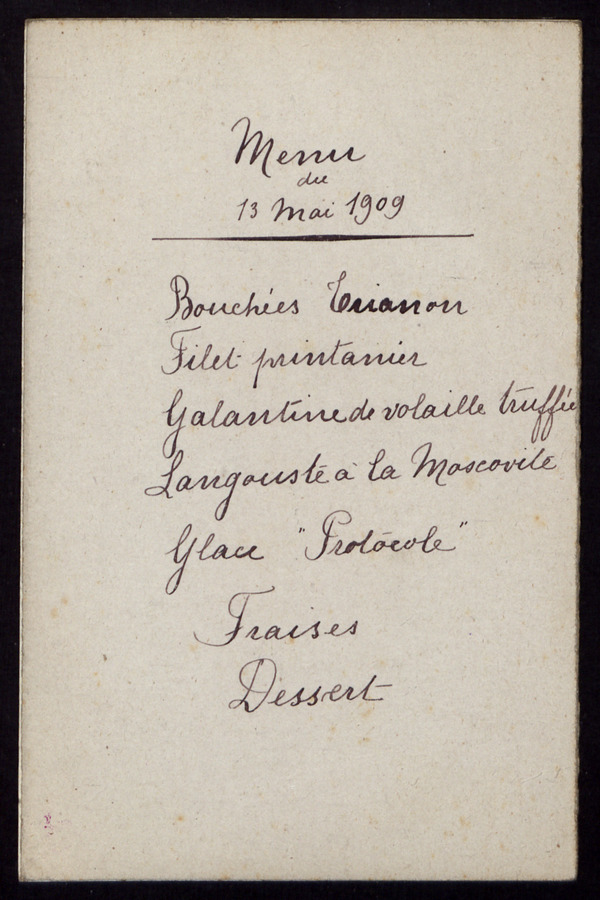 Menu
du
13 Mai 1909
Bouchées Trianon
Filet printanier
Galantine de volaille truffée
Langouste à la Moscovite
Glace "Protocole"
Fraises
Dessert